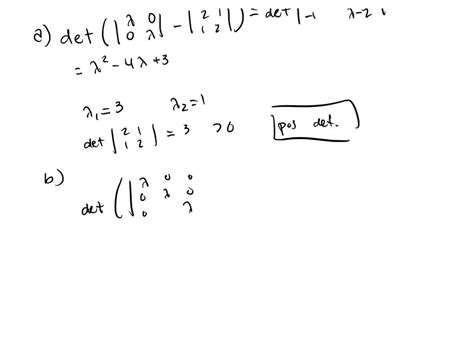 a) det ( | λ 0 0 λ | - | 2 1 1 2 | ) = det | -1 λ-2
= λ² - 4λ + 3
λ₁ = 3 λ₂ = 1
det | 2 1 1 2 | = 3 > 0 pos det.
b)
det ( | λ 0 0 0 λ 0 0 λ